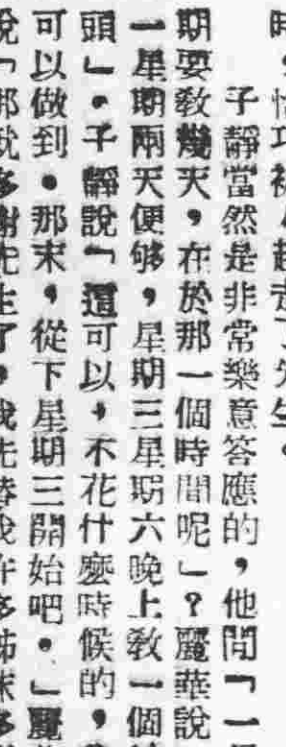 時，恰巧被
子靜當然是非常樂意答應的，他問「一
期要教幾天，在於那一個時間呢」？麗華說
一星期兩天便够，星期三星期六晚上教一個
頭」。子靜說「這可以，不花什麼時候的，
可以做到。那末，從下星期三開始吧。」麗
說「那就多謝先生了，我先替我許多姊妹多